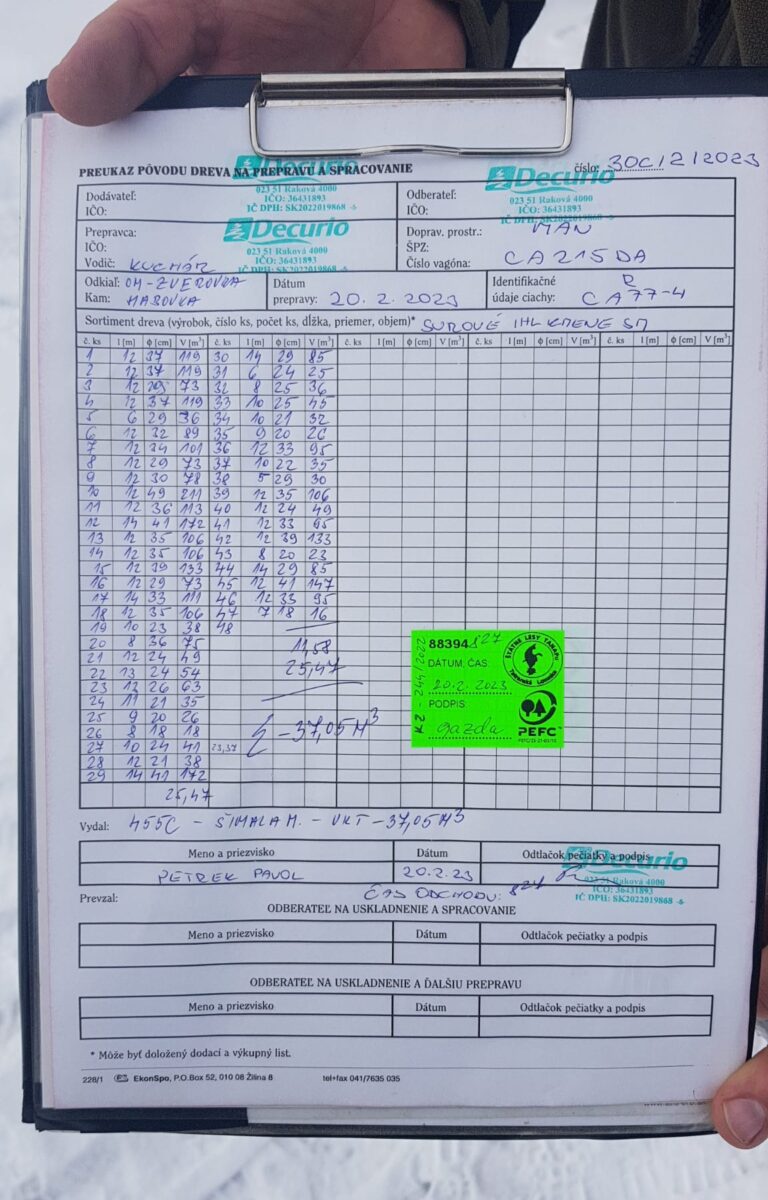 PREUKAZ PÔVODU DREVA NA PREPRAVU A SPRACOVANIE
číslo: 30C/2/2023
Decurio
023 51 Raková 4000
IČO: 36431893
IČ DPH: SK2022019868 -6
Decurio
023 51 Raková 4000
IČO: 36431893
IČ DPH: SK2022019868 -6
Dodávateľ:
IČO:
Odberateľ:
IČO:
Decurio
023 51 Raková 4000
IČO: 36431893
IČ DPH: SK2022019868 -6
Prepravca:
IČO:
Vodič: KUCHÁR
Doprav. prostr.: MAN
ŠPZ:
Číslo vagóna: CA215DA
Odkiaľ: OM-ZVEROVKA
Kam:
Dátum
prepravy: 20. 2. 2023
Identifikačné
údaje ciachy: CA77-4
Sortiment dreva (výrobok, číslo ks, počet ks, dĺžka, priemer, objem)* SUROVÉ IHL KMENE SM
č. ks l [m] ϕ [cm] V [m³] č. ks l [m] ϕ [cm] V [m³] č. ks l [m] ϕ [cm] V [m³] č. ks l [m] ϕ [cm] V [m³] č. ks l [m] ϕ [cm] V [m³]
1 12 37 119 30 14 29 85
2 12 37 119 31 6 24 25
3 12 29 73 32 8 25 36
4 12 37 119 33 10 25 45
5 6 29 36 34 10 21 32
6 12 32 89 35 9 20 26
7 12 34 101 36 12 33 95
8 12 29 73 37 10 22 35
9 12 30 78 38 5 29 30
10 12 49 211 39 12 35 106
11 12 36 113 40 12 24 49
12 14 41 172 41 12 33 95
13 12 35 106 42 12 39 133
14 12 35 106 43 8 20 23
15 12 39 133 44 14 29 85
16 12 29 73 45 12 41 147
17 14 33 111 46 12 33 95
18 12 35 106 47 7 18 16
19 10 23 38 48
20 8 36 75 11,58
21 12 24 49 25,47
22 13 24 54
23 12 26 63
24 11 21 35
25 9 20 26
26 8 18 18 - 37,05 M³
27 10 24 41 23,37
28 12 21 38
29 14 41 172
25,47
KZ - 244/2022
88394 827
DÁTUM, ČAS:
20.2. 2023
PODPIS:
gazda
ŠTÁTNE LESY TANAPU
Tatranská Lomnica
PEFC
Vydal: 455C - ŠIMALA M. - VKT - 37,05 M³
Meno a priezvisko Dátum Odtlačok pečiatky a podpis
PETREK PAVOL 20.2.23
Decurio
023 51 Raková 4000
IČO: 36431893
IČ DPH: SK2022019868 -6
Prevzal: ČAS ODCHODU: 827
ODBERATEĽ NA USKLADNENIE A SPRACOVANIE
Meno a priezvisko Dátum Odtlačok pečiatky a podpis
ODBERATEĽ NA USKLADNENIE A ĎALŠIU PREPRAVU
Meno a priezvisko Dátum Odtlačok pečiatky a podpis
* Môže byť doložený dodací a výkupný list.
228/1 EkonSpo, P.O.Box 52, 010 08 Žilina 8 tel+fax 041/7635 035